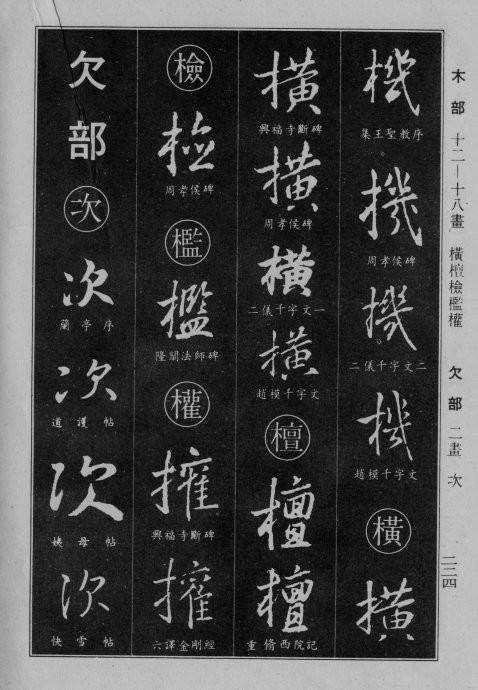 木部 十二—十八畫 橫檀檢檻權 欠部 二畫 次
二二四
機
集王聖教序
機
周孝侯碑
機
二儀千字文二
機
趙模千字文
橫
橫
橫
興福寺斷碑
橫
周孝侯碑
橫
二儀千字文一
橫
趙模千字文
檀
檀
檀
重脩西院記
檢
檢
周孝侯碑
檻
檻
隆闡法師碑
權
權
興福寺斷碑
權
六譯金剛經
欠部
次
次
蘭亭序
次
道護帖
次
姨母帖
次
快雪帖